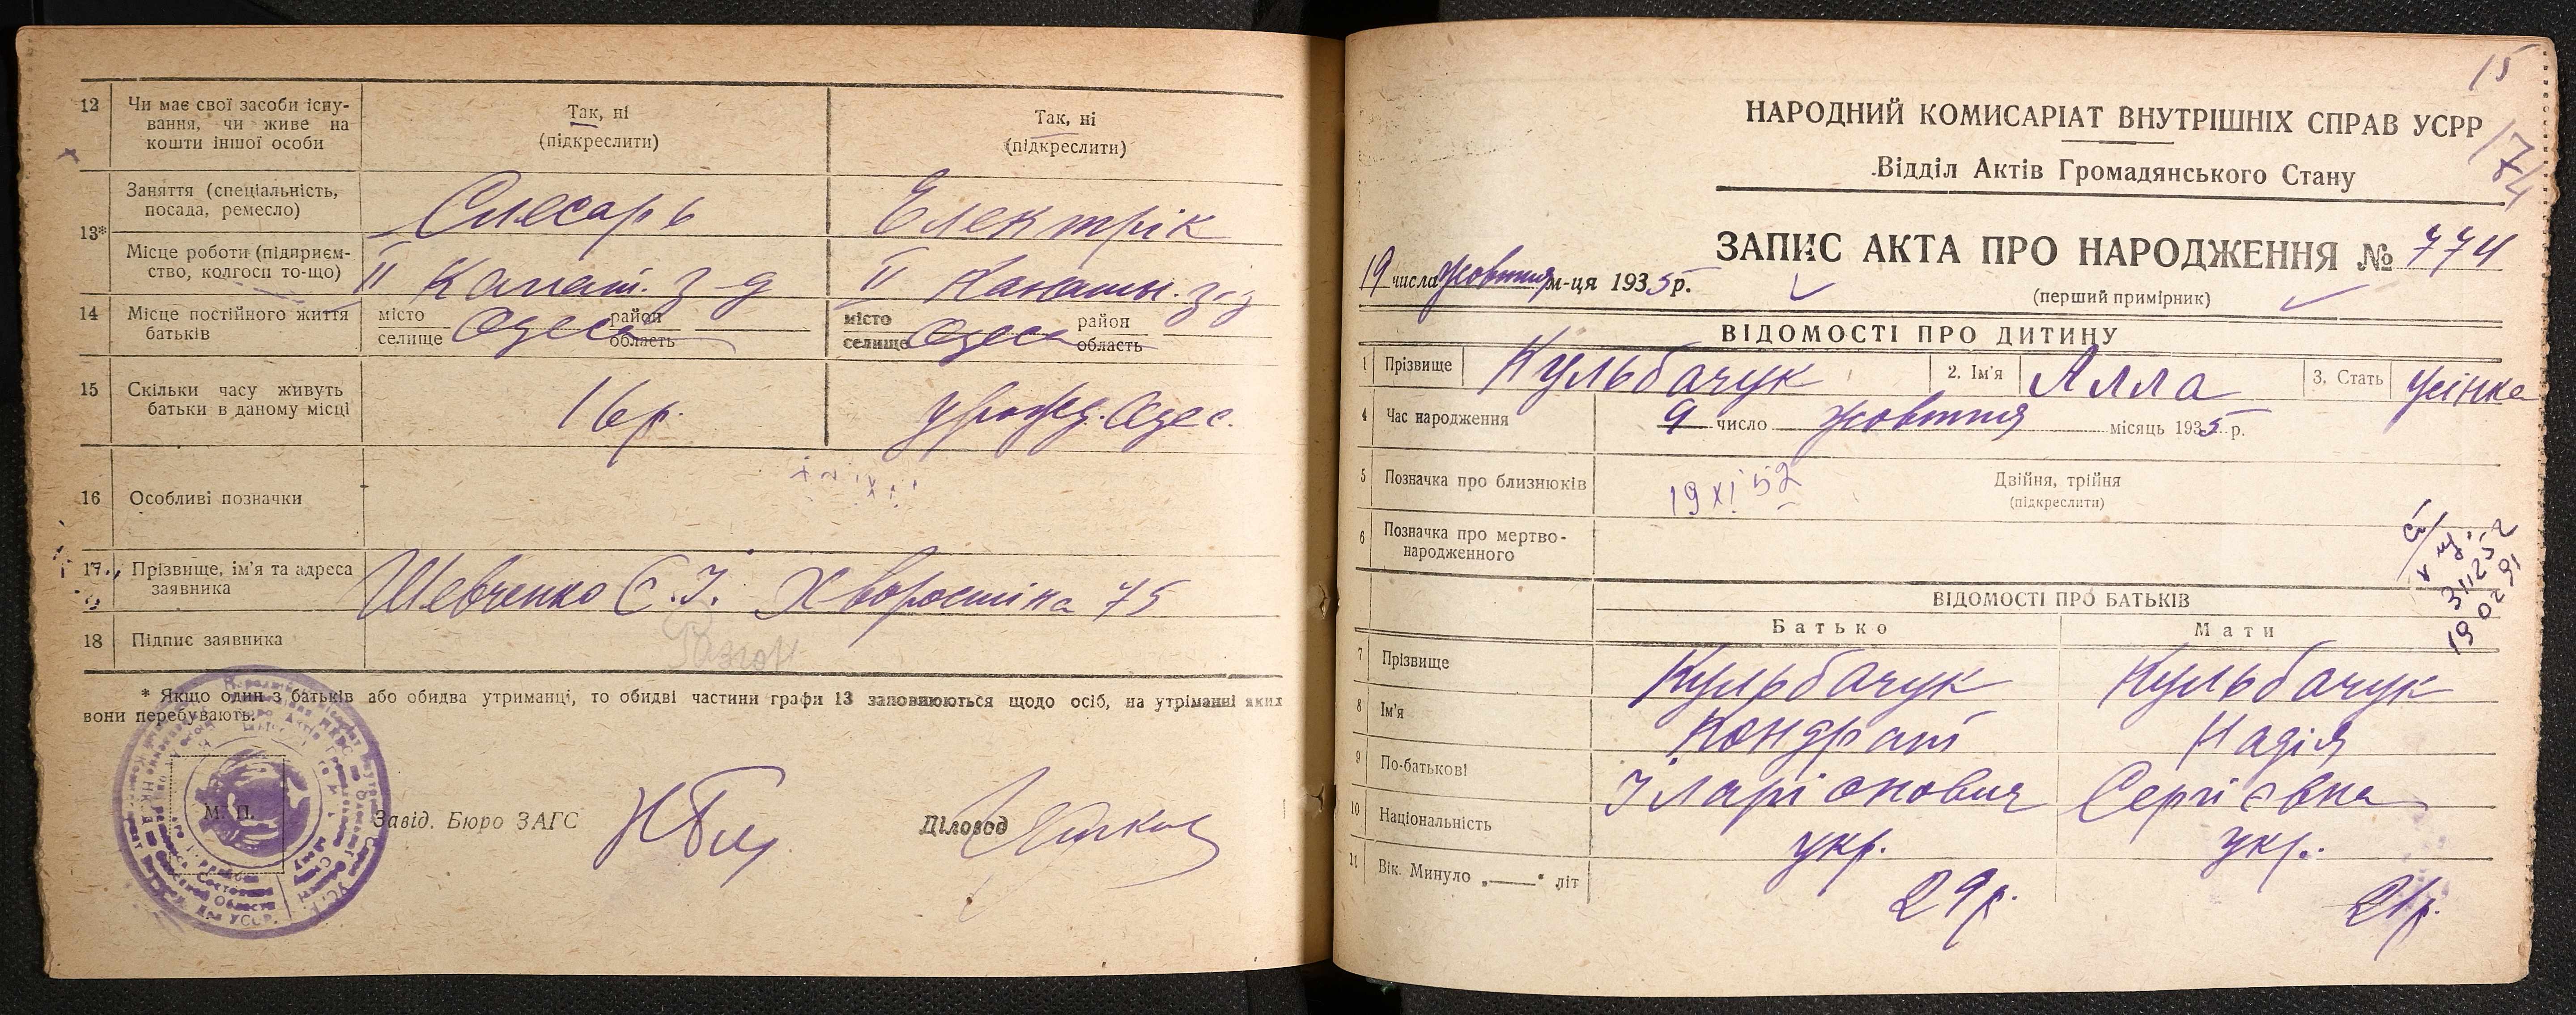 12 Чи має свої засоби існу-
вання, чи живе на
кошти іншої особи
Так, ні
(підкреслити)
Так, ні
(підкреслити)
13*
Заняття (спеціальність,
посада, ремесло)
Слесарь
Електрік
Місце роботи (підприєм-
ство, колгосп то-що)
II Канат. з-д
II Канатн. з-д
14 Місце постійного життя
батьків
місто
селище
Одеса
район
область
місто
селище
Одеса
район
область
15 Скільки часу живуть
батьки в даному місці
16 р.
урожд. Одес.
16 Особливі позначки
17 Прізвище, ім'я та адреса
заявника
Шевченко Є. І. Хворостіна 75
18 Підпис заявника
* Якщо один з батьків або обидва утриманці, то обидві частини графи 13 заповнюються щодо осіб, на утріманні яких
вони перебувають.
М. П.
Завід. Бюро ЗАГС
Діловод
15
174
НАРОДНИЙ КОМИСАРІАТ ВНУТРІШНІХ СПРАВ УСРР
Відділ Актів Громадянського Стану
ЗАПИС АКТА ПРО НАРОДЖЕННЯ № 774
19 числа жовтня м-ця 1935 р.
(перший примірник)
ВІДОМОСТІ ПРО ДИТИНУ
1 Прізвище Кульбачук 2. Ім'я Алла 3. Стать жінка
4 Час народження 9 число жовтня місяць 1935 р.
5 Позначка про близнюків 19 XI 52
Двійня, трійня
(підкреслити)
6 Позначка про мертво-
народженного
ВІДОМОСТІ ПРО БАТЬКІВ
Батько Мати
7 Прізвище Кульбачук Кульбачук
8 Ім'я Кондрат Надія
9 По-батькові Іларіонович Сергієвна
10 Національність укр. укр.
11 Вік. Минуло „—“ літ 29 р. 21 р.